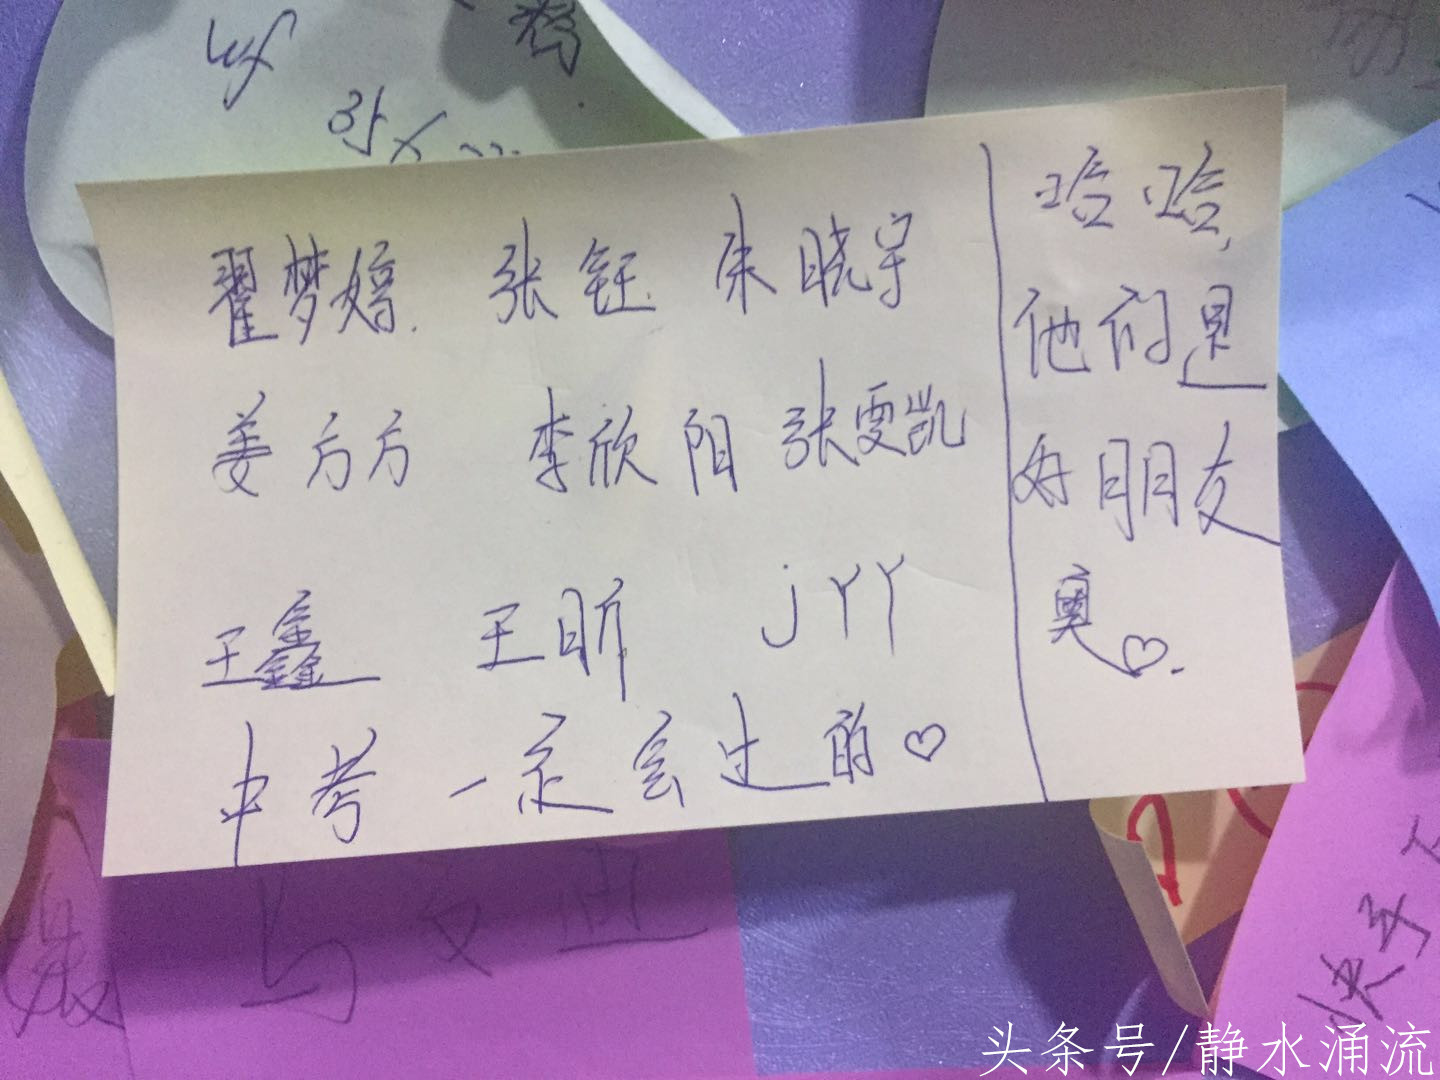 翟梦嫱. 张钰 朱晓宇
姜方方 李欣阳 张雯凯
王鑫 王昕 jYY
中考一定会过的♡
哈哈,
他们是
好朋友
奥♡.
头条号/静水涌流